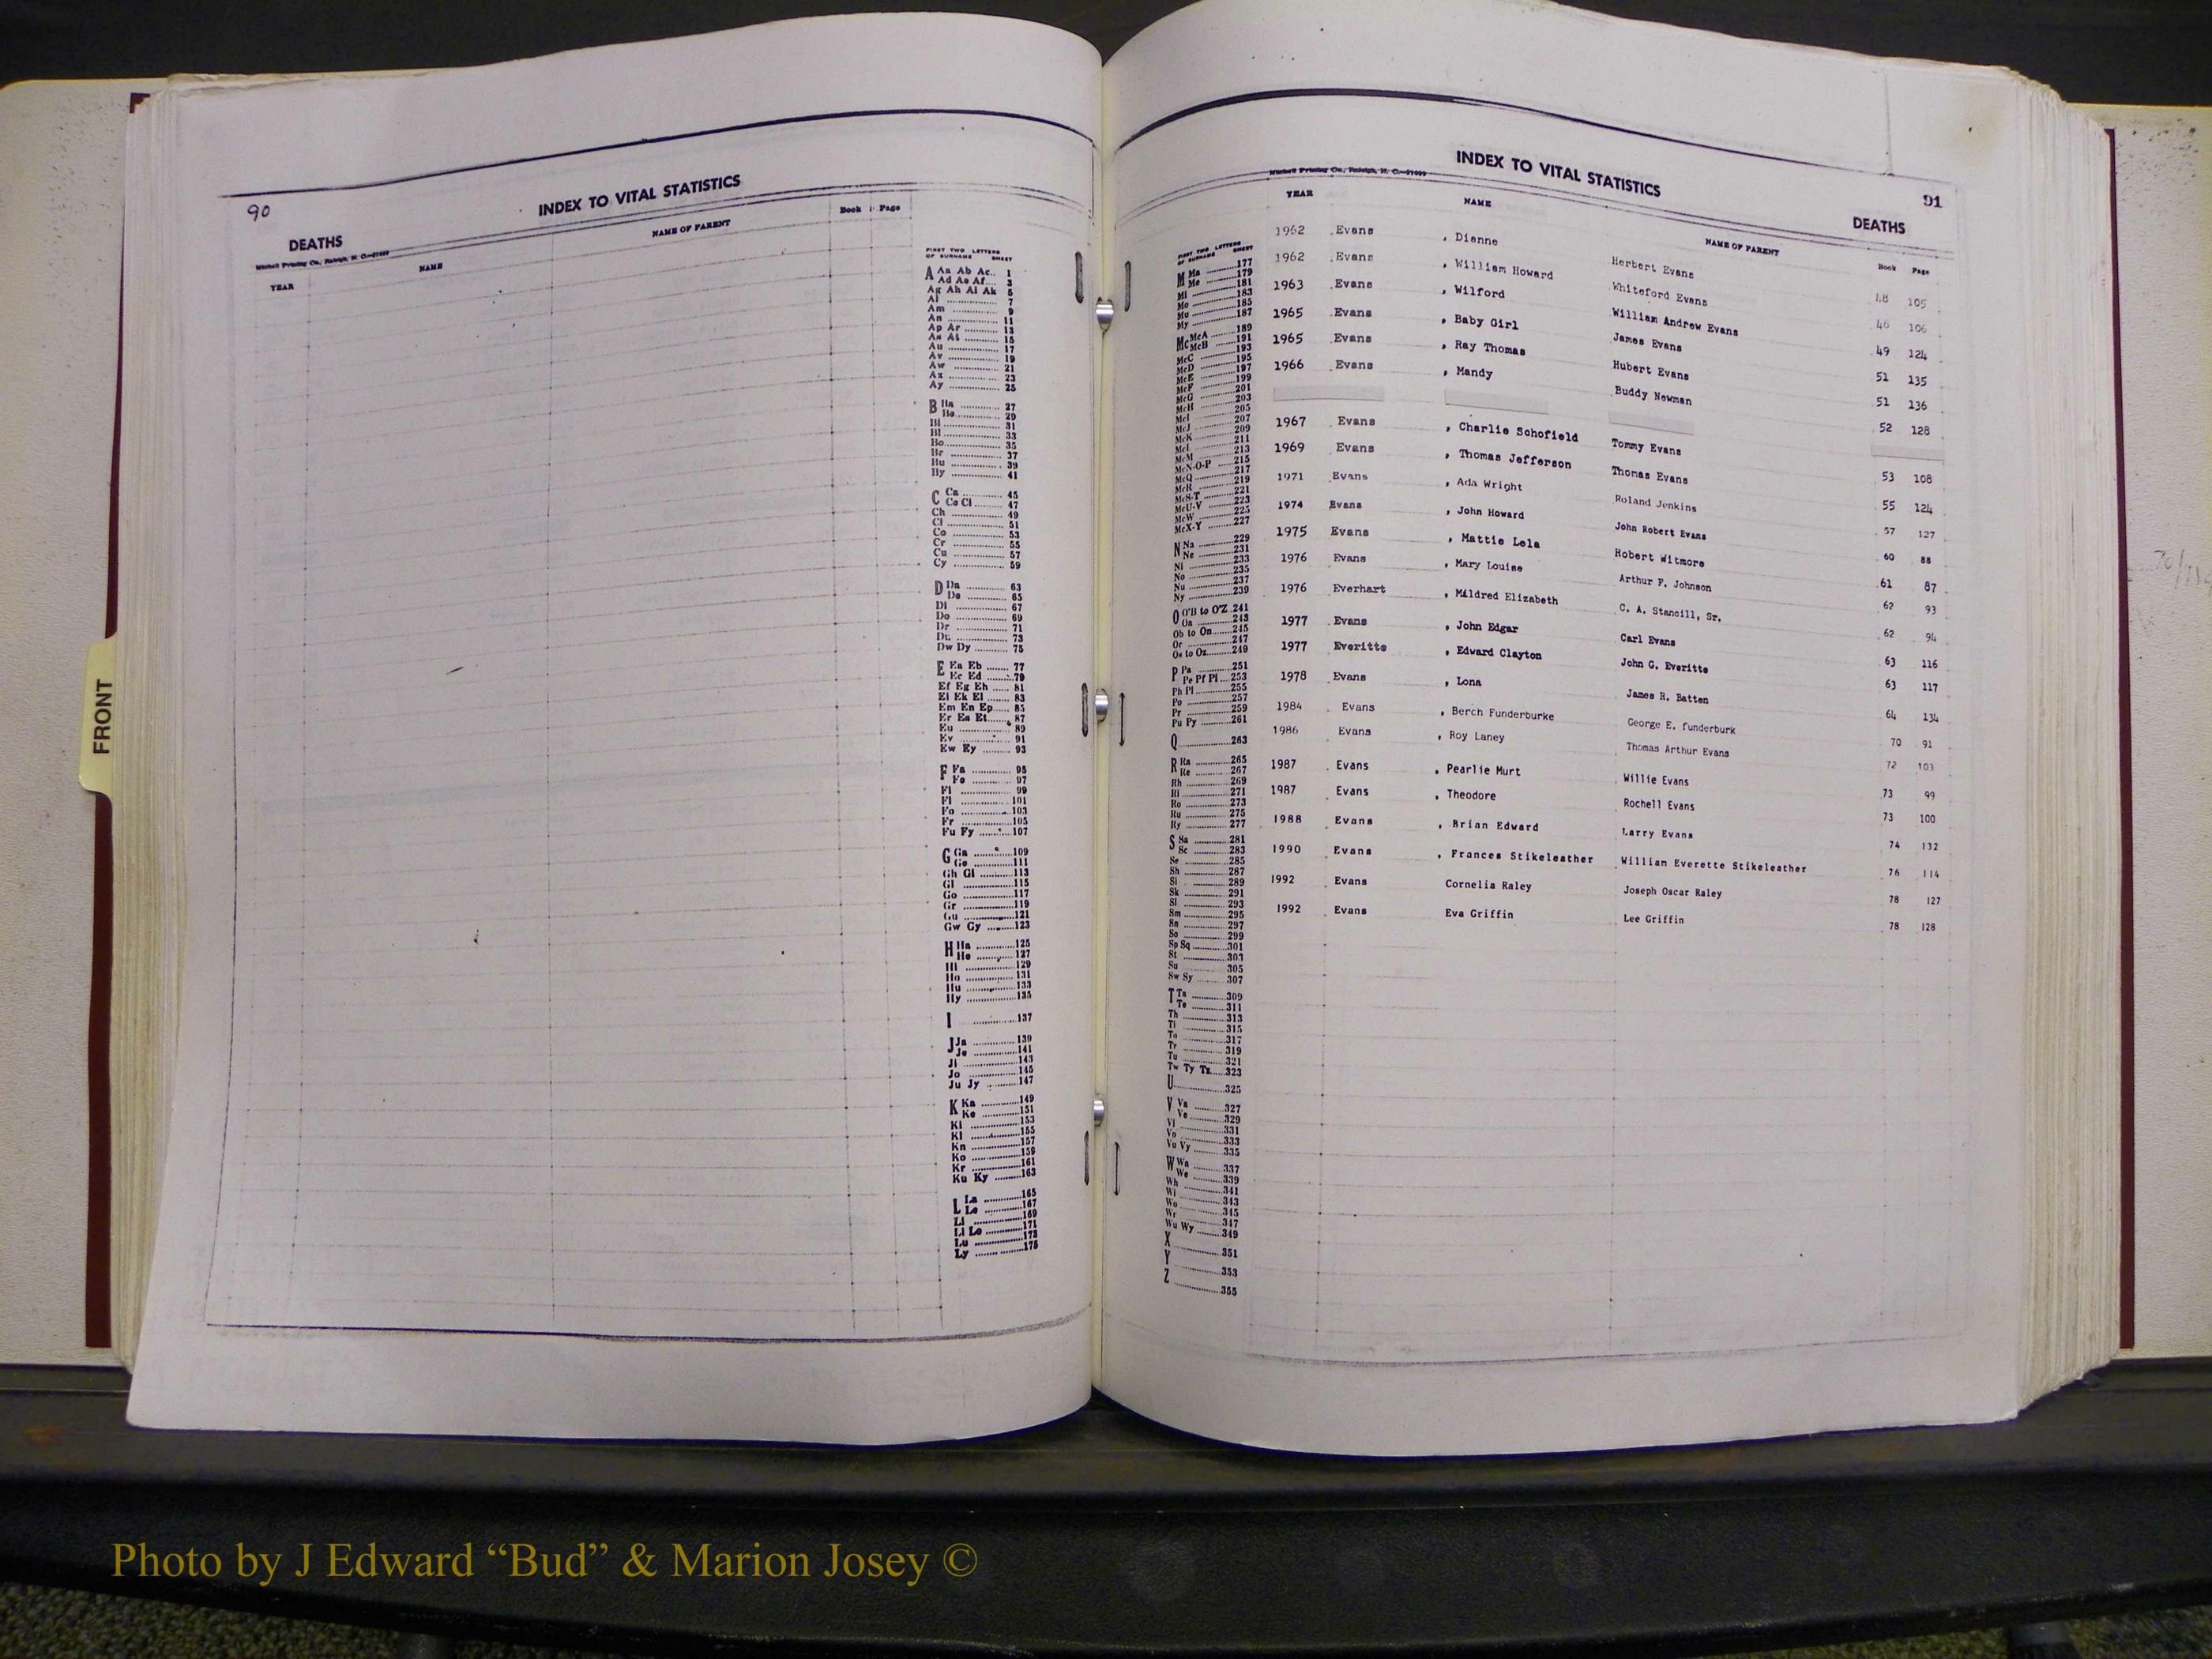 90
INDEX TO VITAL STATISTICS
DEATHS
Mitchell Printing Co., Raleigh, N. C.
YEAR NAME NAME OF PARENT Book Page
FIRST TWO LETTERS
OF SURNAME SHEET
A Aa Ab Ac.. 1
Ad Ae Af.... 3
Ag Ah Ai Ak 5
Al ............ 7
Am ............ 9
An ............ 11
Ap Ar ............ 13
As At ............ 15
Au ............ 17
Av ............ 19
Aw ............ 21
Ax ............ 23
Ay ............ 25
B Ba ............ 27
Be ............ 29
Bi ............ 31
Bl ............ 33
Bo ............ 35
Br ............ 37
Bu ............ 39
By ............ 41
C Ca ............ 45
Ce Ci ........ 47
Ch ............ 49
Cl ............ 51
Co ............ 53
Cr ............ 55
Cu ............ 57
Cy ............ 59
D Da ............ 63
De ............ 65
Di ............ 67
Do ............ 69
Dr ............ 71
Du ............ 73
Dw Dy .......... 75
E Ea Eb ........ 77
Ec Ed ........ 79
Ef Eg Eh ..... 81
Ei Ek El ...... 83
Em En Ep..... 85
Er Es Et....... 87
Eu ............ 89
Ev ............ 91
Ew Ey ........ 93
F Fa ............ 95
Fe ............ 97
Fi ............ 99
Fl ............ 101
Fo ............ 103
Fr ............ 105
Fu Fy ........ 107
G Ga ............ 109
Ge ............ 111
Gh Gi .......... 113
Gl ............ 115
Go ............ 117
Gr ............ 119
Gu ............ 121
Gw Gy ........ 123
H Ha ............ 125
He ............ 127
Hi ............ 129
Ho ............ 131
Hu ............ 133
Hy ............ 135
I ............ 137
J Ja ............ 139
Je ............ 141
Ji ............ 143
Jo ............ 145
Ju Jy .......... 147
K Ka ............ 149
Ke ............ 151
Ki ............ 153
Kl ............ 155
Kn ............ 157
Ko ............ 159
Kr ............ 161
Ku Ky ........ 163
L La ............ 165
Le ............ 167
Li ............ 169
Ll Lo .......... 171
Lu ............ 173
Ly ............ 175
INDEX TO VITAL STATISTICS
91
Mitchell Printing Co., Raleigh, N. C.
DEATHS
YEAR NAME NAME OF PARENT Book Page
FIRST TWO LETTERS
OF SURNAME SHEET
M Ma ........ 177
Me ........ 179
Mi ............ 181
Mo ............ 183
Mu ............ 185
My ............ 187
Mc McA ........ 189
McB ........ 191
McC ............ 193
McD ............ 195
McE ............ 197
McF ............ 199
McG ............ 201
McH ............ 203
McI ............ 205
McJ ............ 207
McK ............ 209
McL ............ 211
McM ............ 213
McN-O-P ...... 215
McQ ............ 217
McR ............ 219
McS-T .......... 221
McU-V .......... 223
McW ............ 225
McX-Y .......... 227
N Na ............ 229
Ne ............ 231
Ni ............ 233
No ............ 235
Nu ............ 237
Ny ............ 239
O O'B to O'Z .241
Oa ............ 243
Ob to On...... 245
Or ............ 247
Os to Oz...... 249
P Pa ............ 251
Pe Pf Pi .... 253
Ph Pl .......... 255
Po ............ 257
Pr ............ 259
Pu Py .......... 261
Q ............ 263
R Ra ............ 265
Re ............ 267
Rh ............ 269
Ri ............ 271
Ro ............ 273
Ru ............ 275
Ry ............ 277
S Sa ............ 281
Sc ............ 283
Se ............ 285
Sh ............ 287
Si ............ 289
Sk ............ 291
Sl ............ 293
Sm ............ 295
Sn ............ 297
So ............ 299
Sp Sq .......... 301
St ............ 303
Su ............ 305
Sw Sy .......... 307
T Ta ............ 309
Te ............ 311
Th ............ 313
Ti ............ 315
To ............ 317
Tr ............ 319
Tu ............ 321
Tw Ty Tz...... 323
U ............ 325
V Va ............ 327
Ve ............ 329
Vi ............ 331
Vo ............ 333
Vu Vy .......... 335
W Wa ............ 337
We ............ 339
Wh ............ 341
Wi ............ 343
Wo ............ 345
Wr ............ 347
Wu Wy ........ 349
X ............ 351
Y ............ 353
Z ............ 355
1962 Evans , Dianne Herbert Evans 48 105
1962 Evans , William Howard Whiteford Evans 48 106
1963 Evans , Wilford William Andrew Evans 49 124
1965 Evans , Baby Girl James Evans 51 135
1965 Evans , Ray Thomas Hubert Evans 51 136
1966 Evans , Mandy Buddy Newman 52 128
1967 Evans , Charlie Schofield Tommy Evans 53 108
1969 Evans , Thomas Jefferson Thomas Evans 55 124
1971 Evans , Ada Wright Roland Jenkins 57 127
1974 Evans , John Howard John Robert Evans 60 88
1975 Evans , Mattie Lela Robert Witmore 61 87
1976 Evans , Mary Louise Arthur F. Johnson 62 93
1976 Everhart , Mildred Elizabeth C. A. Stancill, Sr. 62 94
1977 Evans , John Edgar Carl Evans 63 116
1977 Everitte , Edward Clayton John G. Everitte 63 117
1978 Evans , Lona James R. Batten 64 134
1984 Evans , Berch Funderburke George E. funderburk 70 91
1986 Evans , Roy Laney Thomas Arthur Evans 72 103
1987 Evans , Pearlie Murt Willie Evans 73 99
1987 Evans , Theodore Rochell Evans 73 100
1988 Evans , Brian Edward Larry Evans 74 132
1990 Evans , Frances Stikeleather William Everette Stikeleather 76 114
1992 Evans Cornelia Raley Joseph Oscar Raley 78 127
1992 Evans Eva Griffin Lee Griffin 78 128
FRONT
Photo by J Edward “Bud” & Marion Josey ©